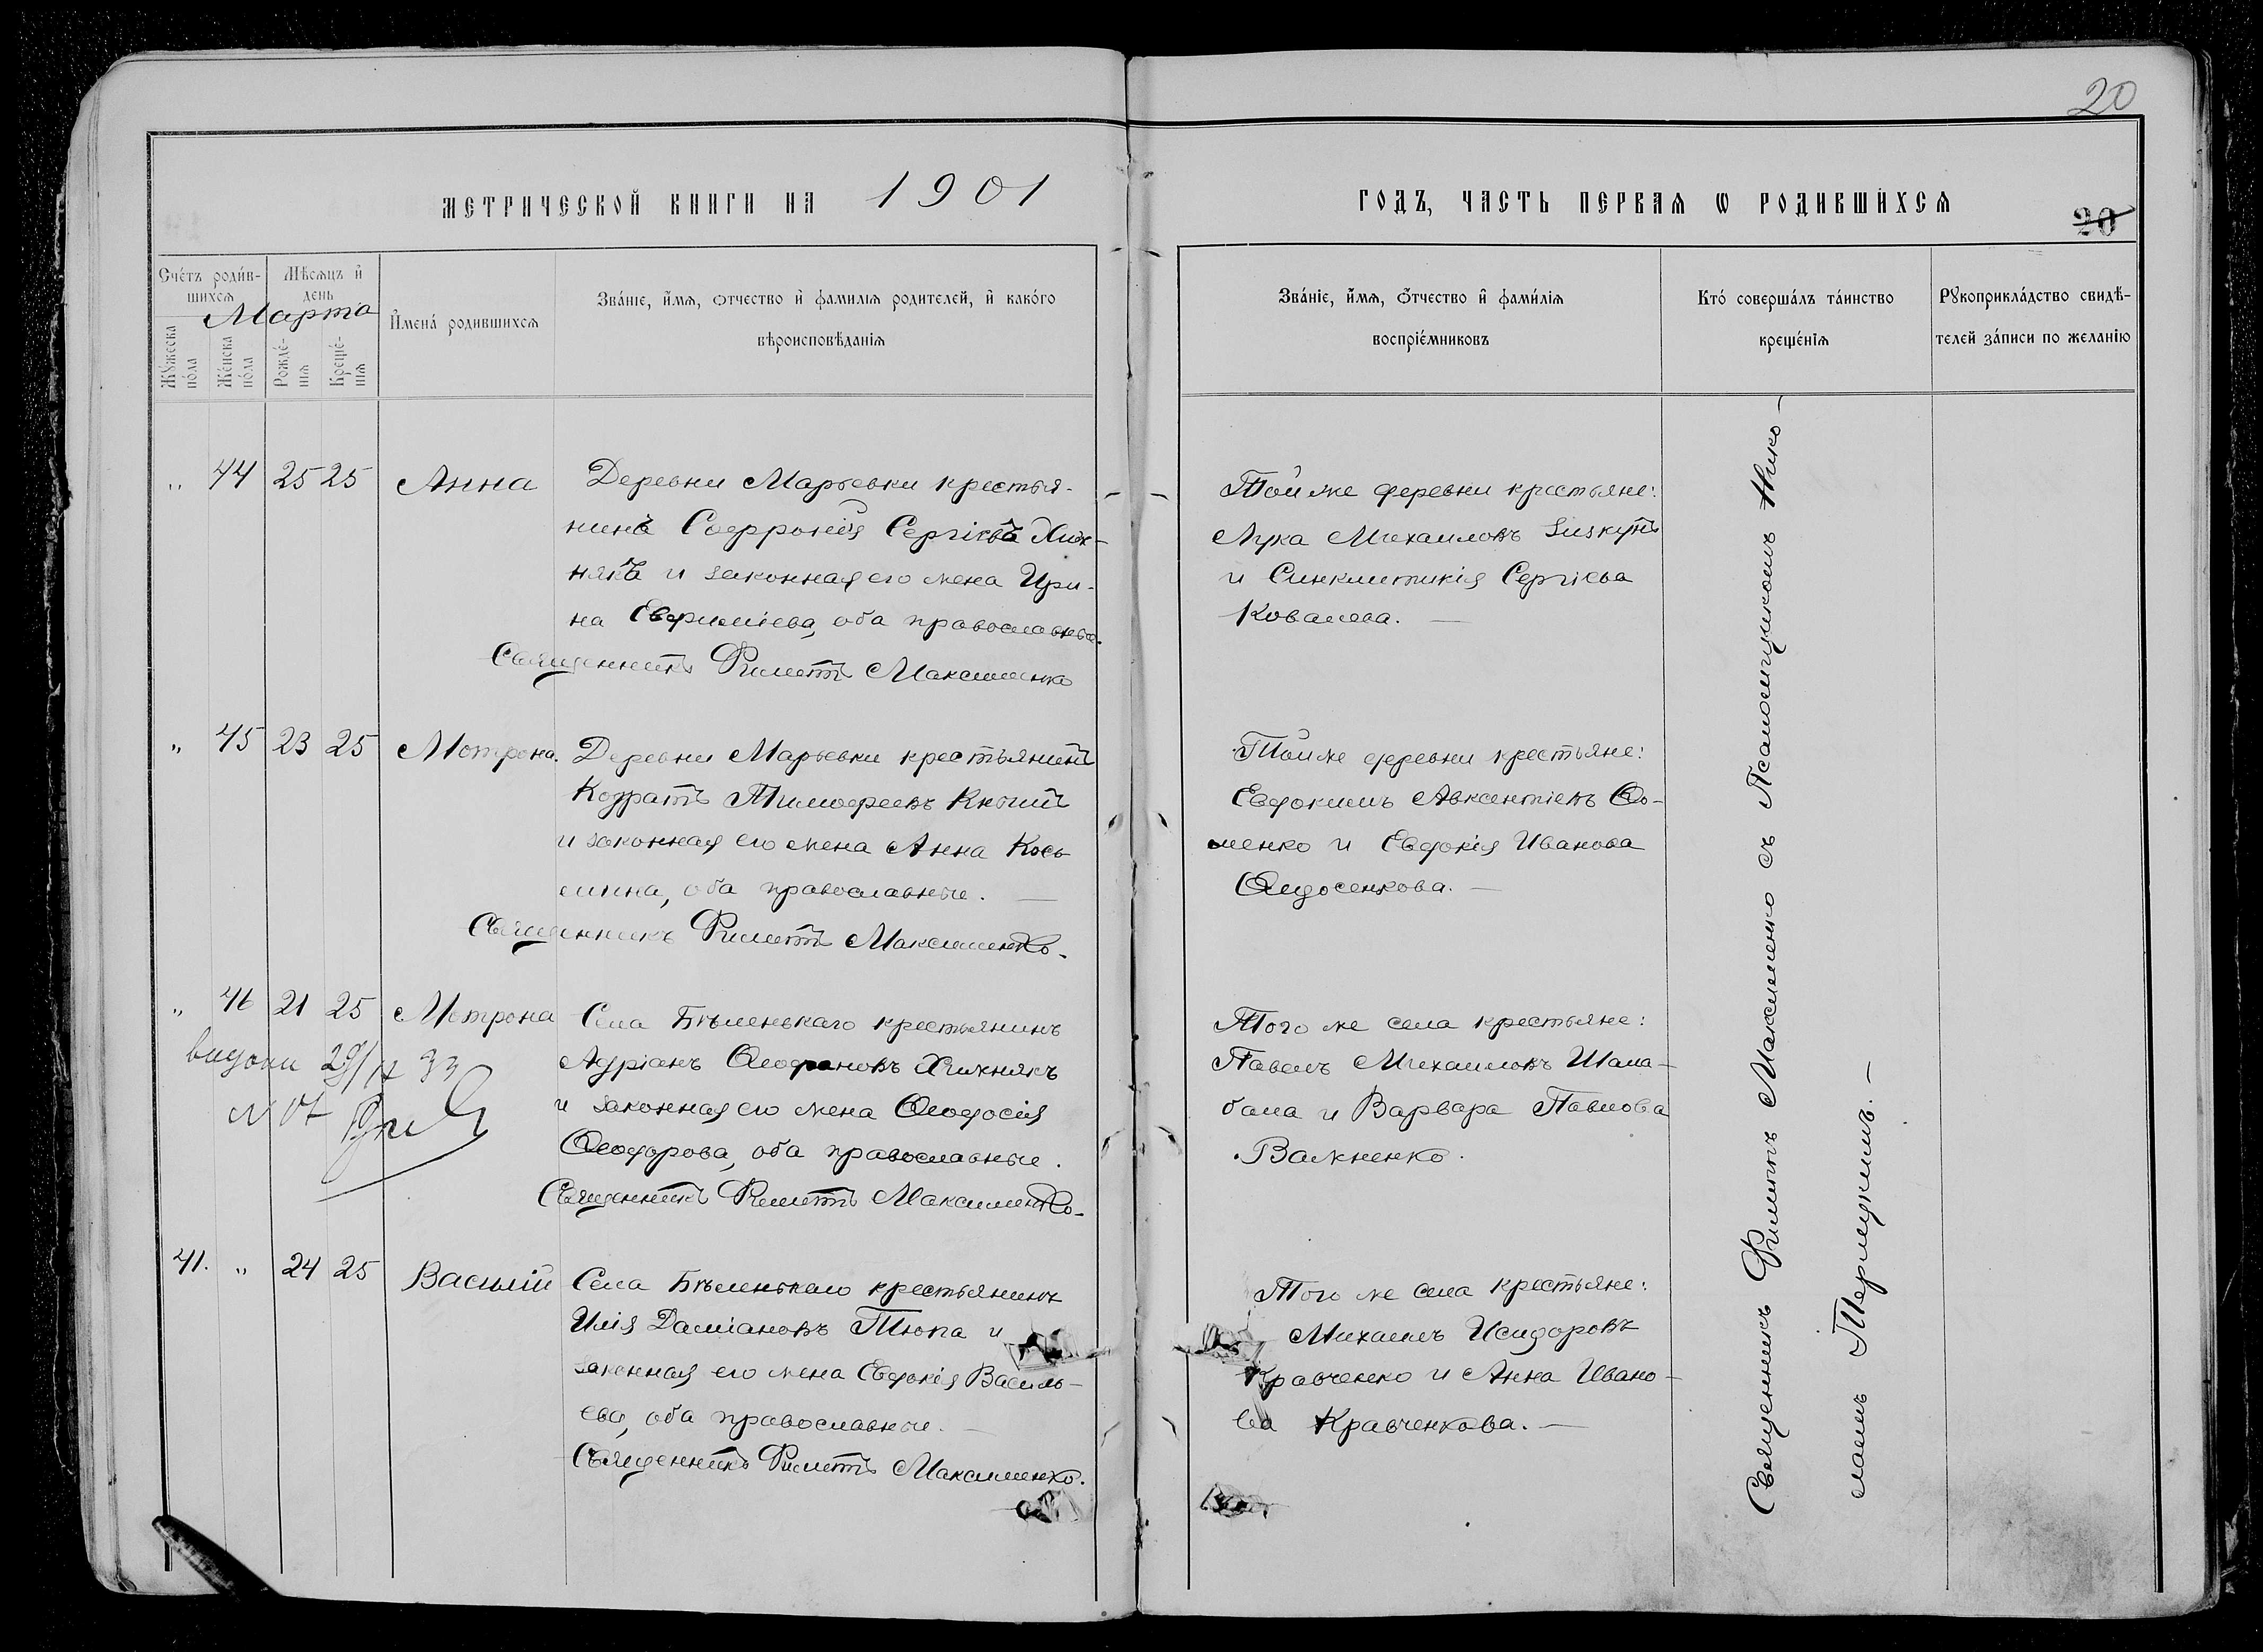 20
МЕТРИЧЕСКОЙ КНИГИ НА 1901
ГОДЪ, ЧАСТЬ ПЕРВАЯ Ѡ РОДИВШИХСЯ
20
Счетъ родив-
шихся
Мѣсяцъ и
день
Марта
Мужеска
пола
Женска
пола
Рожде-
нія
Креще-
нія
Имена родившихся
Званіе, имя, отчество и фамилія родителей, и какого
вѣроисповѣданія
Званіе, имя, отчество и фамилія
воспріемниковъ
Кто совершалъ таинство
крещенія
Рукоприкладство свидѣ-
телей записи по желанію
„ 44 25 25 Анна
Деревни Марьевки крестья-
нинъ Софроній Сергіевъ Хиж-
някъ и законная его жена Ири-
на Евфиміева, оба православные.
Священникъ Филиппъ Максименко
Той же деревни крестьяне:
Лука Михаиловъ
и Синклитикія Сергіева
Ковалева. —
„ 45 23 25 Мотрона.
Деревни Марьевки крестьянинъ
Кодратъ Тимофеевъ
и законная его жена Анна Кось-
мина, оба православные. —
Священникъ Филиппъ Максименко.
Той же деревни крестьяне:
Евдокимъ Авксентіевъ Ѳо-
менко и Евдокія Иванова
Ѳедосенкова. —
„ 46 21 25 Мотрона
видани 29/ 33
Села Бѣленькаго крестьянинъ
Адріанъ Ѳеофановъ Хижнякъ
и законная его жена Ѳеодосія
Ѳеодорова, оба православные.
Священникъ Филиппъ Максименко.
Того же села крестьяне:
Павелъ Михаиловъ Шала-
бала и Варвара Павлова
Важненко.
41. „ 24 25 Василій
Села Бѣленькаго крестьянинъ
Илія Даміановъ Тюпа и
законная его жена Евдокія Василь-
ева, оба православные. —
Священникъ Филиппъ Максименко.
Того же села крестьяне:
Михаилъ Исидоровъ
Кравченко и Анна Ивано-
ва Кравченкова. —
Священникъ Филиппъ Максименко съ Псаломщикомъ Нико-
лаемъ —